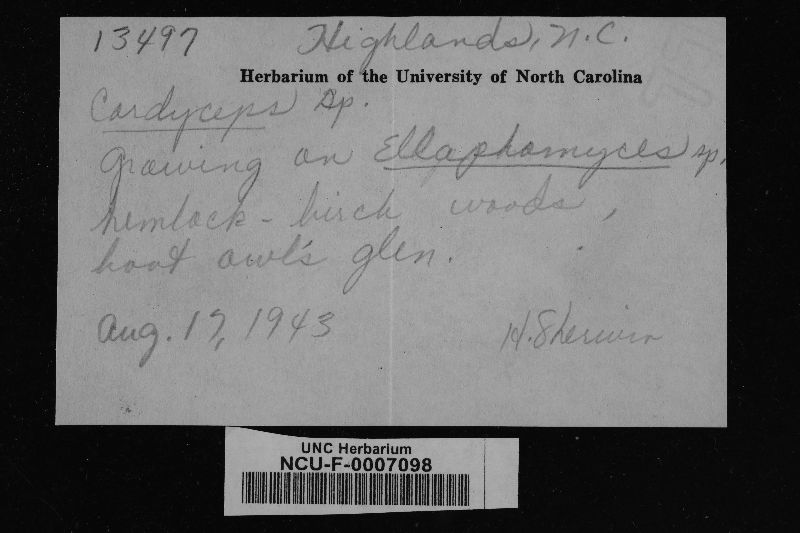 13497 Highlands, N.C.
Herbarium of the University of North Carolina
Cordyceps sp.
growing on Ellaphomyces sp,
hemlock - birch woods,
hoot owl's glen.
Aug. 17, 1943 H. Sherwin
UNC Herbarium
NCU-F-0007098